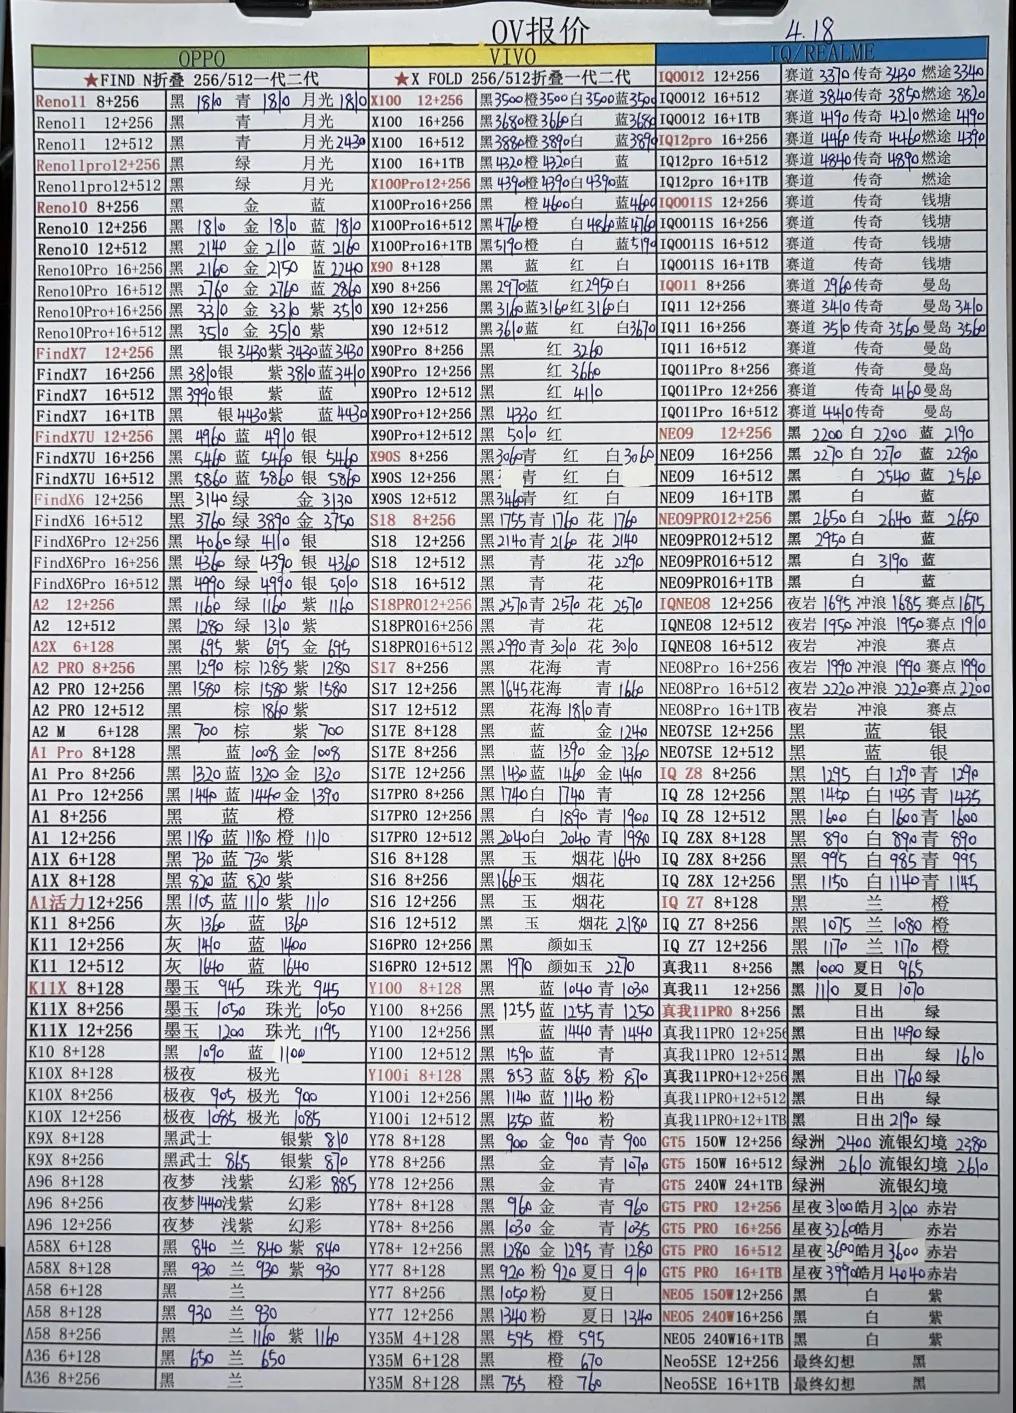 OV报价 4.18
OPPO VIVO IQ/REALME
★FIND N折叠 256/512一代二代 ★X FOLD 256/512折叠一代二代 IQ0012 12+256 赛道 3370 传奇 3430 燃途 3340
Reno11 8+256 黑 1810 青 1810 月光 1810 X100 12+256 黑3500橙3500白3500蓝3500 IQ0012 16+512 赛道 3840 传奇 3850 燃途 3820
Reno11 12+256 黑 青 月光 X100 16+256 黑3680橙3660白 蓝3680 IQ0012 16+1TB 赛道 4190 传奇 4210 燃途 4190
Reno11 12+512 黑 青 月光2430 X100 16+512 黑3880橙3890白 蓝3890 IQ12pro 16+256 赛道 4460 传奇 4460 燃途 4390
Reno11pro12+256 黑 绿 月光 X100 16+1TB 黑4320橙4320白 蓝 IQ12pro 16+512 赛道 4840 传奇 4890 燃途
Reno11pro12+512 黑 绿 月光 X100Pro12+256 黑4390橙4390白4390蓝 IQ12pro 16+1TB 赛道 传奇 燃途
Reno10 8+256 黑 金 蓝 X100Pro16+256 黑 橙4600白 蓝4600 IQ0011S 12+256 赛道 传奇 钱塘
Reno10 12+256 黑 1810 金 1810 蓝 1810 X100Pro16+512 黑4760橙 白4860蓝4760 IQ0011S 16+256 赛道 传奇 钱塘
Reno10 12+512 黑 2140 金 2110 蓝 2160 X100Pro16+1TB 黑5190橙 白 蓝5190 IQ0011S 16+512 赛道 传奇 钱塘
Reno10Pro 16+256 黑 2160 金 2150 蓝 2240 X90 8+128 黑 蓝 红 白 IQ0011S 16+1TB 赛道 传奇 钱塘
Reno10Pro 16+512 黑 2760 金 2760 蓝 2860 X90 8+256 黑2970蓝 红2950白 IQ011 8+256 赛道 2960传奇 曼岛
Reno10Pro+16+256 黑 3310 金 3310 紫 3510 X90 12+256 黑3160蓝3160红3160白 IQ11 12+256 赛道 3410传奇 曼岛 3410
Reno10Pro+16+512 黑 3510 金 3510 紫 X90 12+512 黑3610蓝 红 白3670 IQ11 16+256 赛道 3510传奇 3560 曼岛 3560
FindX7 12+256 黑 银3430紫3430蓝3430 X90Pro 8+256 黑 红 3260 IQ11 16+512 赛道 传奇 曼岛
FindX7 16+256 黑3810银 紫3810蓝3410 X90Pro 12+256 黑 红 3660 IQ011Pro 8+256 赛道 传奇 曼岛
FindX7 16+512 黑3990银 紫 蓝 X90Pro 12+512 黑 红 4110 IQ011Pro 12+256 赛道 传奇 4160曼岛
FindX7 16+1TB 黑 银4430紫 蓝4430 X90Pro+12+256 黑 4330 红 IQ011Pro 16+512 赛道 4410传奇 曼岛
FindX7U 12+256 黑 4960 蓝 4910 银 X90Pro+12+512 黑 5010 红 NEO9 12+256 黑 2200 白 2200 蓝 2190
FindX7U 16+256 黑 5460 蓝 5460 银 5460 X90S 8+256 黑3060青 红 白3060 NEO9 16+256 黑 2270 白 2270 蓝 2280
FindX7U 16+512 黑 5860 蓝 5860 银 5860 X90S 12+256 黑 青 红 白 NEO9 16+512 黑 白 2540 蓝 2560
FindX6 12+256 黑 3140绿 金 3130 X90S 12+512 黑3460青 红 白 NEO9 16+1TB 黑 白 蓝
FindX6 16+512 黑 3760 绿 3890 金 3750 S18 8+256 黑1755青1760 花 1760 NEO9PRO12+256 黑 2650 白 2640 蓝 2650
FindX6Pro 12+256 黑 4060 绿 4110 银 S18 12+256 黑2140青2160 花 2140 NEO9PRO12+512 黑 2950白 蓝
FindX6Pro 16+256 黑 4360 绿 4390 银 4360 S18 12+512 黑 青 花 2290 NEO9PRO16+512 黑 白 3190 蓝
FindX6Pro 16+512 黑 4990 绿 4990 银 5010 S18 16+512 黑 青 花 NEO9PRO16+1TB 黑 白 蓝
A2 12+256 黑 1160 绿 1160 紫 1160 S18PRO12+256 黑2570青 2570 花 2570 IQNEO8 12+256 夜岩 1695 冲浪 1685 赛点1675
A2 12+512 黑 1280 绿 1310 紫 S18PRO16+256 黑 青 花 IQNEO8 12+512 夜岩 1950 冲浪 1950赛点1910
A2X 6+128 黑 695 紫 695 金 695 S18PRO16+512 黑2990青 3010 花 3010 IQNEO8 16+512 夜岩 冲浪 赛点
A2 PRO 8+256 黑 1290 棕 1285 紫 1280 S17 8+256 黑 花海 青 NEO8Pro 16+256 夜岩 1990 冲浪 1990 赛点1990
A2 PRO 12+256 黑 1580 棕 1580 紫 1580 S17 12+256 黑1645花海 青 1660 NEO8Pro 16+512 夜岩 2220冲浪 2220赛点2200
A2 PRO 12+512 黑 棕 1860紫 S17 12+512 黑 花海 1810 青 NEO8Pro 16+1TB 夜岩 冲浪 赛点
A2 M 6+128 黑 700 棕 紫 700 S17E 8+128 黑 蓝 金 1240 NEO7SE 12+256 黑 蓝 银
A1 Pro 8+128 黑 蓝 1008 金 1008 S17E 8+256 黑 蓝 1390 金 1360 NEO7SE 12+512 黑 蓝 银
A1 Pro 8+256 黑 1320 蓝 1320 金 1320 S17E 12+256 黑1430蓝 1460 金 1410 IQ Z8 8+256 黑 1295 白 1290 青 1290
A1 Pro 12+256 黑 1440 蓝 1440金 1390 S17PRO 8+256 黑1740白 1740 青 IQ Z8 12+256 黑 1450 白 1435 青 1435
A1 8+256 黑 蓝 橙 S17PRO 12+256 黑 白 1890 青 1900 IQ Z8 12+512 黑 1600 白 1600青 1600
A1 12+256 黑1180 蓝 1180 橙 1110 S17PRO 12+512 黑2040白 2040 青 1980 IQ Z8X 8+128 黑 890 白 890青 890
A1X 6+128 黑 730 蓝 730 紫 S16 8+128 黑 玉 烟花 1640 IQ Z8X 8+256 黑 995 白 985青 995
A1X 8+128 黑 820 蓝 820 紫 S16 8+256 黑1660玉 烟花 IQ Z8X 12+256 黑 1150 白 1140青 1145
A1活力12+256 黑 1105 蓝 1110 紫 1110 S16 12+256 黑 玉 烟花 IQ Z7 8+128 黑 兰 橙
K11 8+256 灰 1360 蓝 1360 S16 12+512 黑 玉 烟花 2180 IQ Z7 8+256 黑 1075 兰 1080 橙
K11 12+256 灰 1410 蓝 1400 S16PRO 12+256 黑 颜如玉 IQ Z7 12+256 黑 1170 兰 1170 橙
K11 12+512 灰 1640 蓝 1640 S16PRO 12+512 黑 1970 颜如玉 2270 真我11 8+256 黑 1000 夏日 965
K11X 8+128 墨玉 945 珠光 945 Y100 8+128 黑 蓝 1040 青 1030 真我11 12+256 黑 1110 夏日 1070
K11X 8+256 墨玉 1050 珠光 1050 Y100 8+256 黑 1255 蓝 1255 青 1250 真我11PRO 8+256 黑 日出 绿
K11X 12+256 墨玉 1200 珠光 1195 Y100 12+256 黑 蓝 1440 青 1440 真我11PRO 12+256 黑 日出 1490绿
K10 8+128 黑 1090 蓝 1100 Y100 12+512 黑 1590 蓝 青 真我11PRO 12+512 黑 日出 绿 1610
K10X 8+128 极夜 极光 Y100i 8+128 黑 853 蓝 865 粉 870 真我11PRO+12+256 黑 日出 1760绿
K10X 8+256 极夜 905 极光 900 Y100i 12+256 黑 1140 蓝 1140 粉 真我11PRO+12+512 黑 日出 绿
K10X 12+256 极夜 1085 极光 1085 Y100i 12+512 黑 1350 蓝 粉 真我11PRO+12+1TB 黑 日出2190 绿
K9X 8+128 黑武士 银紫 810 Y78 8+128 黑 900 金 900 青 900 GT5 150W 12+256 绿洲 2400 流银幻境 2380
K9X 8+256 黑武士 865 银紫 870 Y78 8+256 黑 金 青 1070 GT5 150W 16+512 绿洲 2610 流银幻境 2610
A96 8+128 夜梦 浅紫 幻彩 885 Y78 12+256 黑 金 青 GT5 240W 24+1TB 绿洲 流银幻境
A96 8+256 夜梦1440浅紫 幻彩 Y78+ 8+128 黑 960 金 青 960 GT5 PRO 12+256 星夜 3100皓月 3100 赤岩
A96 12+256 夜梦 浅紫 幻彩 Y78+ 8+256 黑 1030 金 青 1035 GT5 PRO 16+256 星夜 3260皓月 赤岩
A58X 6+128 黑 840 兰 840 紫 840 Y78+ 12+256 黑 1280 金 1295 青 1280 GT5 PRO 16+512 星夜 3600皓月 3600 赤岩
A58X 8+128 黑 930 兰 930 紫 930 Y77 8+128 黑 920 粉 920 夏日 910 GT5 PRO 16+1TB 星夜 3990皓月 4040 赤岩
A58 6+128 黑 兰 Y77 8+256 黑 1050粉 夏日 NEO5 150W12+256 黑 白 紫
A58 8+128 黑 930 兰 930 Y77 12+256 黑 1340粉 夏日 1340 NEO5 240W16+256 黑 白 紫
A58 8+256 黑 兰 1160 紫 1160 Y35M 4+128 黑 595 橙 595 NEO5 240W16+1TB 黑 白 紫
A36 6+128 黑 650 兰 650 Y35M 6+128 黑 橙 670 Neo5SE 12+256 最终幻想 黑
A36 8+256 黑 兰 Y35M 8+128 黑 755 橙 760 Neo5SE 16+1TB 最终幻想 黑